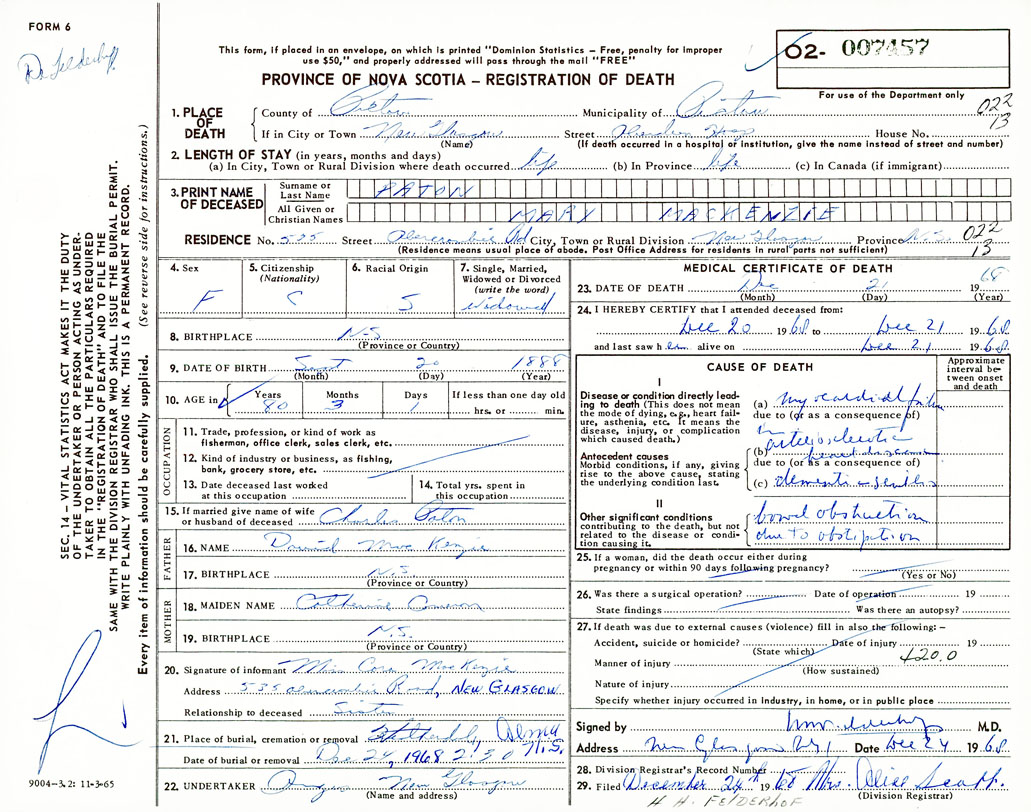 FORM 6
Dr. Felderhof
This form, if placed in an envelope, on which is printed "Dominion Statistics – Free, penalty for improper
use $50," and properly addressed will pass through the mail "FREE"
PROVINCE OF NOVA SCOTIA – REGISTRATION OF DEATH
02- 007457
For use of the Department only
022
13
1. PLACE OF DEATH
County of Pictou Municipality of Pictou
If in City or Town New Glasgow Street Aberdeen Hosp House No.
(Name) (If death occurred in a hospital or institution, give the name instead of street and number)
2. LENGTH OF STAY (in years, months and days)
(a) In City, Town or Rural Division where death occurred life (b) In Province life (c) In Canada (if immigrant)
3. PRINT NAME OF DECEASED
Surname or Last Name PATON
All Given or Christian Names MARY MACKENZIE
RESIDENCE No. 535 Street Abercrombie Rd City, Town or Rural Division New Glasgow Province N.S.
(Residence means usual place of abode. Post Office Address for residents in rural parts not sufficient)
022
13
4. Sex
F
5. Citizenship
(Nationality)
C
6. Racial Origin
S
7. Single, Married,
Widowed or Divorced
(write the word)
Widowed
8. BIRTHPLACE N-S
(Province or Country)
9. DATE OF BIRTH Sept 20 1888
(Month) (Day) (Year)
10. AGE in Years 80 Months 3 Days 1 If less than one day old
hrs. or min.
OCCUPATION
11. Trade, profession, or kind of work as
fisherman, office clerk, sales clerk, etc.
12. Kind of industry or business, as fishing,
bank, grocery store, etc.
13. Date deceased last worked
at this occupation
14. Total yrs. spent in
this occupation
15. If married give name of wife
or husband of deceased Charles Paton
FATHER
16. NAME MacKenzie
17. BIRTHPLACE N.S.
(Province or Country)
MOTHER
18. MAIDEN NAME Catherine Cameron
19. BIRTHPLACE N.S.
(Province or Country)
20. Signature of informant Miss Cora MacKenzie
Address 535 Abercrombie Road, NEW GLASGOW
Relationship to deceased Sister
21. Place of burial, cremation or removal Alma N.S.
Date of burial or removal Dec 24, 1968 2:30
22. UNDERTAKER Angus New Glasgow
(Name and address)
MEDICAL CERTIFICATE OF DEATH
23. DATE OF DEATH Dec 21 1968
(Month) (Day) (Year)
24. I HEREBY CERTIFY that I attended deceased from:
Dec 20 1968 to Dec 21 1968
and last saw her alive on Dec 21 1968
CAUSE OF DEATH
Approximate
interval be-
tween onset
and death
I
Disease or condition directly lead-
ing to death (This does not mean
the mode of dying, e.g., heart fail-
ure, asthenia, etc. It means the
disease, injury, or complication
which caused death.)
(a) myocardial failure
due to (or as a consequence of)
Antecedent causes
Morbid conditions, if any, giving
rise to the above cause, stating
the underlying condition last.
(b) arteriosclerotic heart disease
due to (or as a consequence of)
(c) dementia senilis
II
Other significant conditions
contributing to the death, but not
related to the disease or condi-
tion causing it.
bowel obstruction
due to obstipation
25. If a woman, did the death occur either during
pregnancy or within 90 days following pregnancy?
(Yes or No)
26. Was there a surgical operation? Date of operation 19
State findings Was there an autopsy?
27. If death was due to external causes (violence) fill in also the following: –
Accident, suicide or homicide? Date of injury 19
(State which)
Manner of injury 420.0
(How sustained)
Nature of injury
Specify whether injury occurred in Industry, in home, or in public place
Signed by M.D.
Address New Glasgow Date Dec 24 1968
28. Division Registrar's Record Number
29. Filed December 24th 1968 Mrs. Alice Scott
(Division Registrar)
H. H. FELDERHOF
SEC. 14 – VITAL STATISTICS ACT MAKES IT THE DUTY
OF THE UNDERTAKER OR PERSON ACTING AS UNDER-
TAKER TO OBTAIN ALL THE PARTICULARS REQUIRED
IN THE "REGISTRATION OF DEATH" AND TO FILE THE
SAME WITH THE DIVISION REGISTRAR WHO SHALL ISSUE THE BURIAL PERMIT.
WRITE PLAINLY WITH UNFADING INK. THIS IS A PERMANENT RECORD.
Every item of information should be carefully supplied. (See reverse side for instructions.)
9004-3.2: 11-3-65